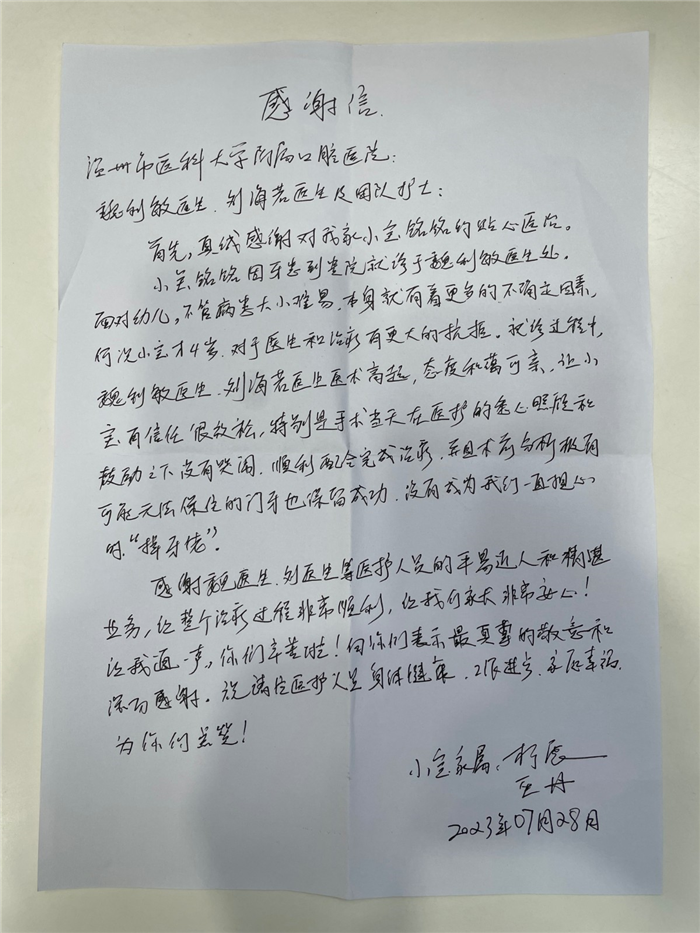 感谢信.
温州市医科大学附属口腔医院:
魏利敏医生、刘海若医生及团队护士:
首先,真诚感谢对我家小宝铭铭的贴心医治。
小宝铭铭因牙患到贵院就诊于魏利敏医生处。
面对幼儿,不管病患大小难易,本身就有着更多的不确定因素,
何况小宝才4岁.对于医生和治疗有更大的抗拒。就诊过程中,
魏利敏医生、刘海若医生医术高超,态度和蔼可亲,让小
宝有信任很放松,特别是手术当天在医护的悉心照顾和
鼓励之下没有哭闹.顺利配合完成治疗.并且术前分析极有
可能无法保住的门牙也保留成功.没有成为我们一直担心
的“掉牙佬”。
感谢魏医生.刘医生等医护人员的平易近人和精湛
业务,让整个治疗过程非常顺利,让我们家长非常安心!
让我道一声,你们辛苦啦!向你们表示最真挚的敬意和
深切感谢。祝诸位医护人员身体健康.工作进步.家庭幸福.
为你们点赞!
小宝家属:
王丹
2023年07月28日